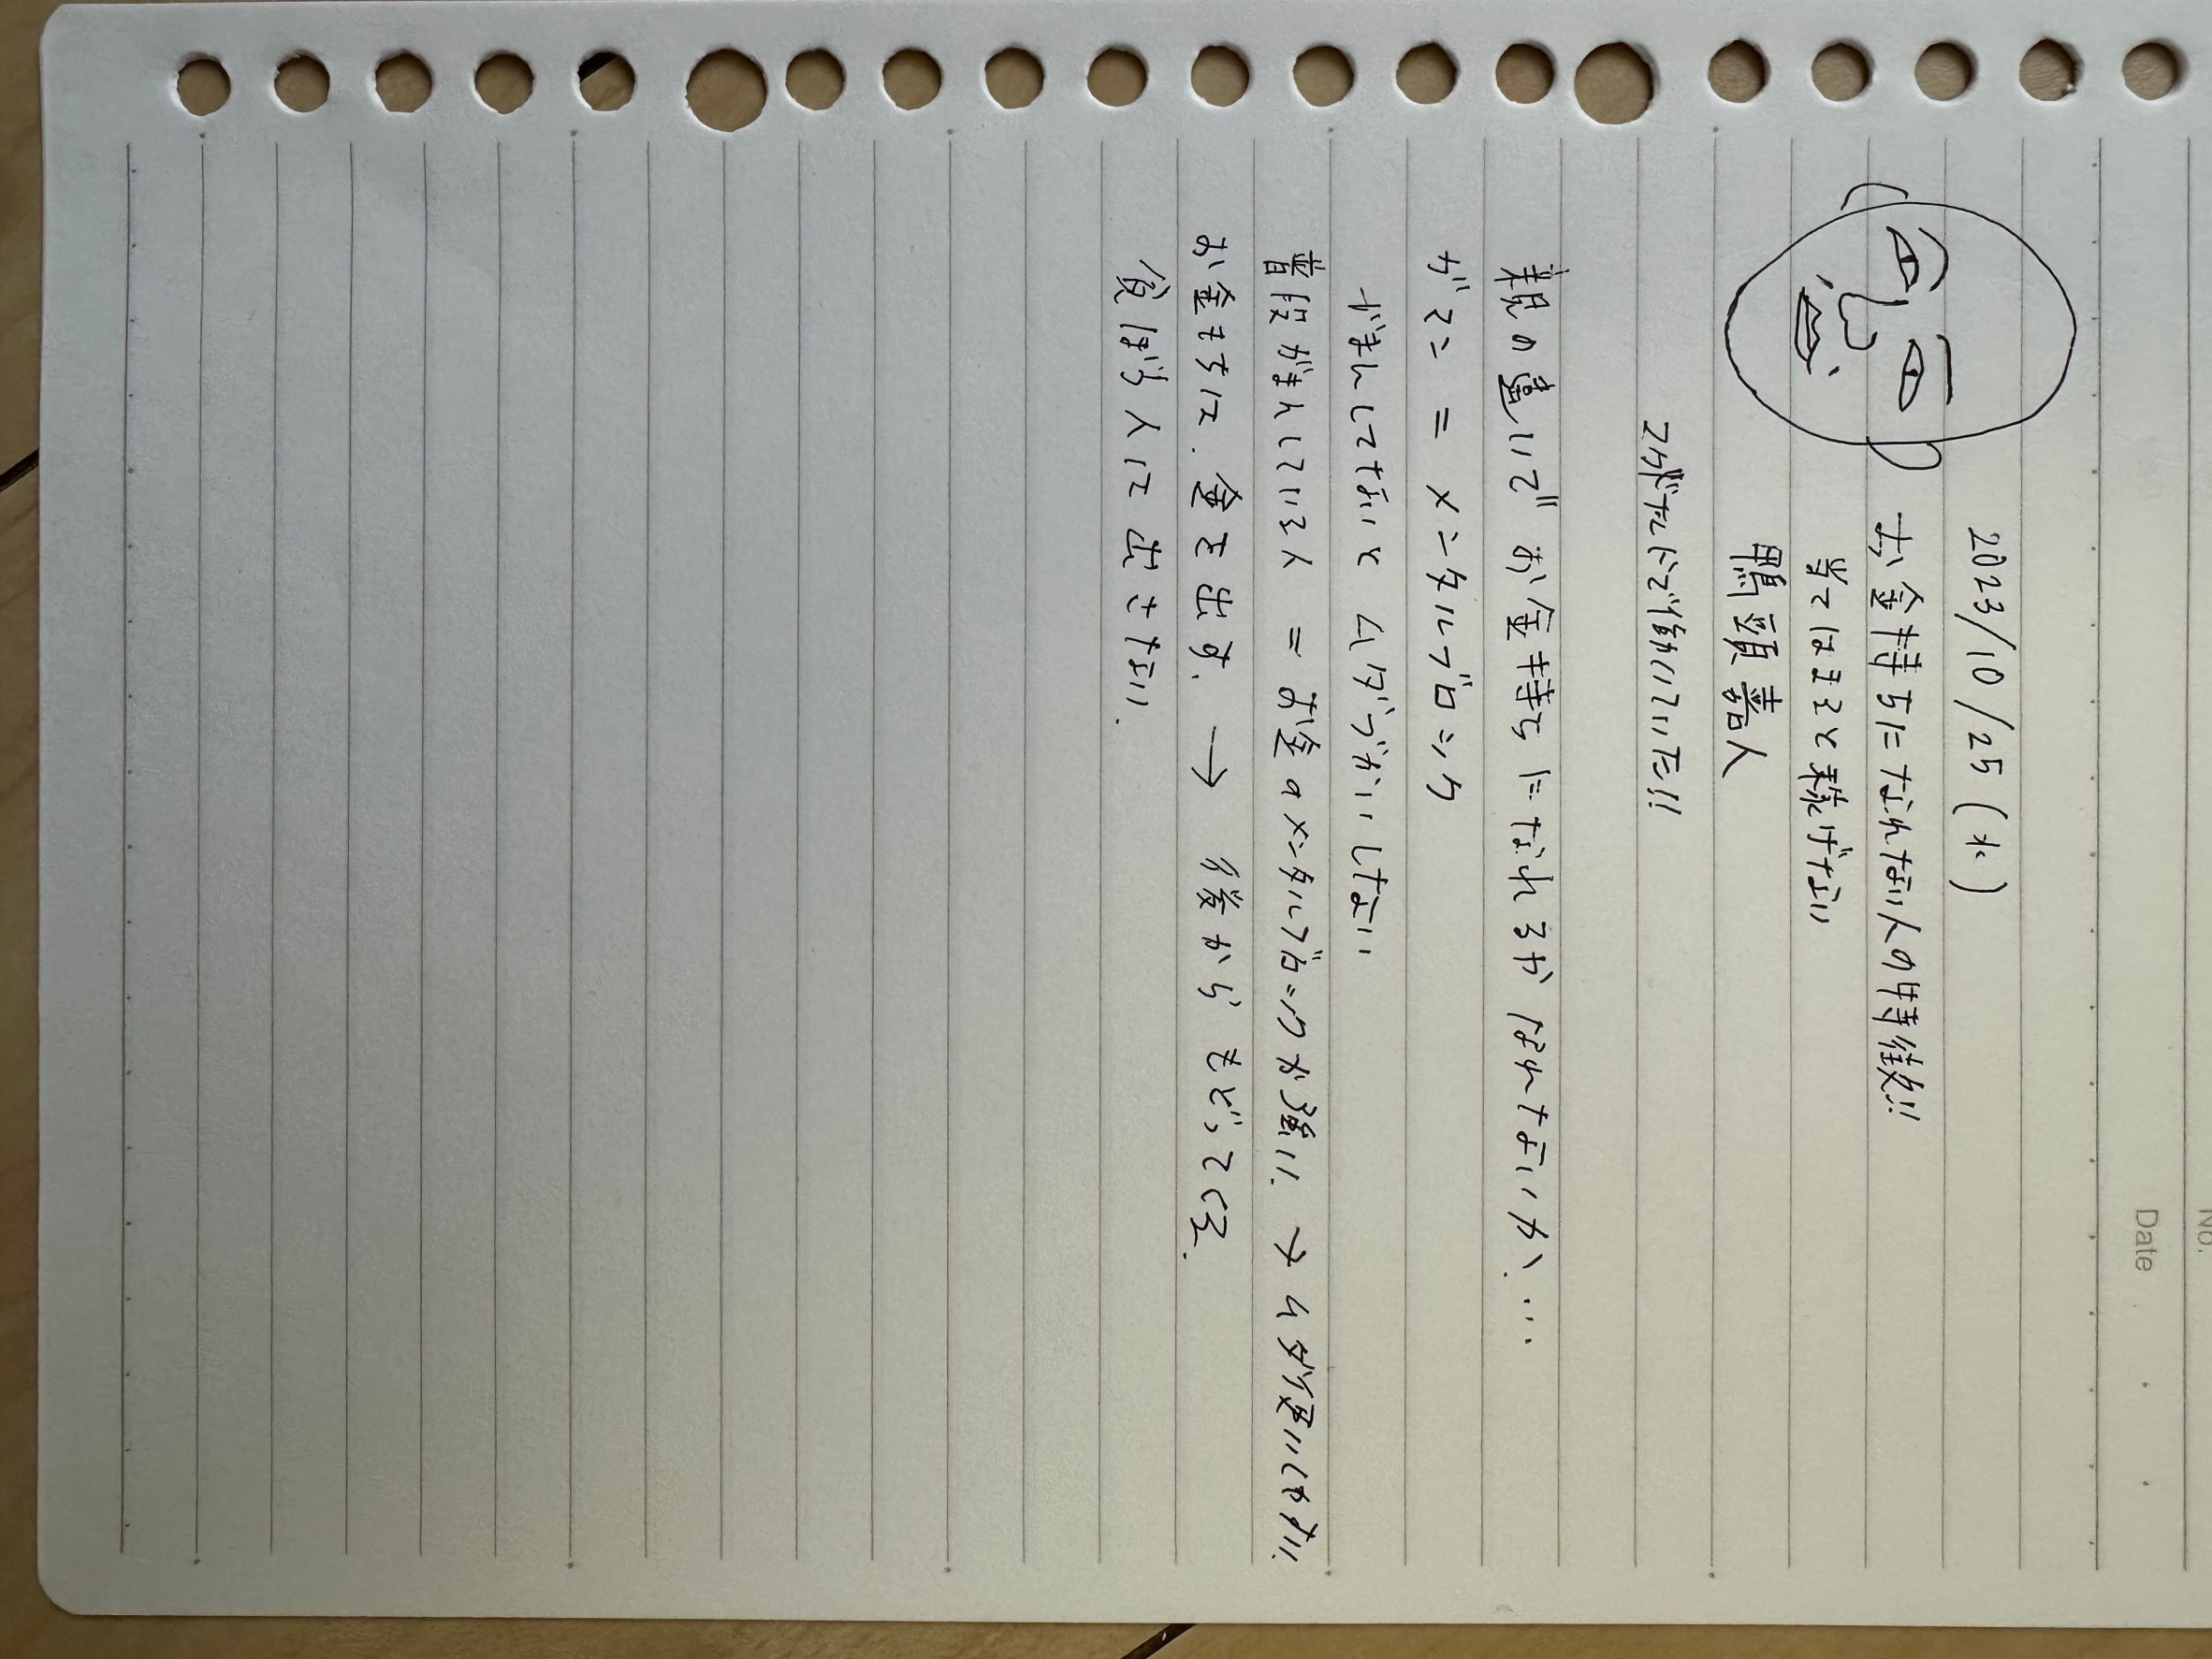 No.
Date
2023/10/25(水)
お金持ちになれない人の特徴!!
当てはまると稼げない
鴨頭嘉人
コメダだけで働いていた!!
親の違いで お金持ちになれるか なれないか、…
ガマン = メンタルブロック
がまんしてないと ムダづかいしない
普段がまんしている人 = お金のメンタルブロックが強い、→ ムダ使いしかない、
お金もちは、金を出す、→ 後から もどってくる、
貧ぼう人は出さない、